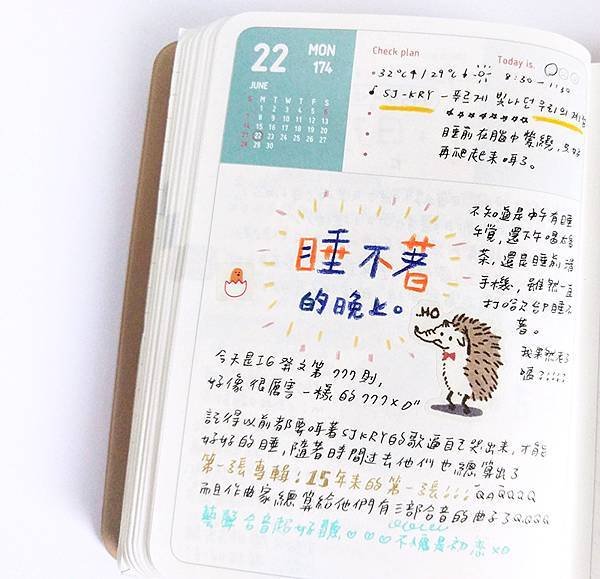 22 MON
174
JUNE
S M T W T F S
1 2 3 4 5 6
7 8 9 10 11 12 13
14 15 16 17 18 19 20
21 22 23 24 25 26 27
28 29 30
Check plan
Today is.
32℃↑ / 29℃↓
8:30 – 11:30
SJ-KRY - 푸르게 빛나던 우리의 계절
睡前在腦中縈繞,又好
再爬起來唱了。
不知道是中午有睡
午覺,還下午喝太多
茶,還是睡前滑
手機,雖然一直
打哈欠卻睡不
著。
我果然老了
嗎?!!!!
睡不著
的晚上。
HO..
今天是IG發文第777則,
好像很厲害一樣的777XD"
記得以前都要聽著SJKRY的歌逼自己哭出來,才能
好好的睡,隨著時間过去他們也總算出了
第一張專輯!15年來的第一張!!!QAQQQQ
而且作曲家總算給他們有三部合音的曲子了QQQQQ
藝聲合音超好聽♡♡♡不愧是初恋XD